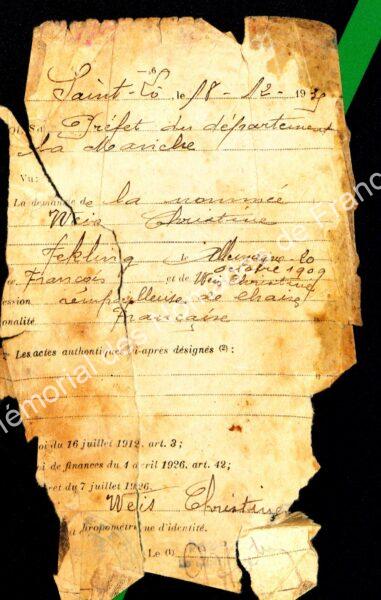 Saint-Lô, le 18-12-1939
Préfet du département
La Manche
Vu:
La demande de la nommée
Weis Christine
Jekling le Allemagne 20
octobre 1909
François et de Weis Christine
ession rempailleuse de chaise
onalité Française
Les actes authentiques ci-après désignés (2):
oi du 16 juillet 1912, art. 3;
oi de finances du 4 avril 1926, art. 42;
ret du 7 juillet 1926.
Weis Christine
hropométrique d'identité.
Le (1)
mémorial des de France